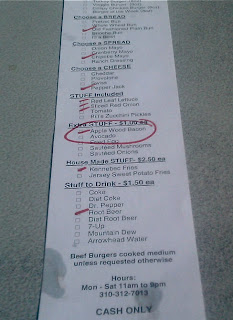 Choose a BREAD
Whole Wheat Bun
Choose a SPREAD
Onion Mayo
Chipotle Mayo
Ranch Dressing
Choose a CHEESE
Cheddar
Provolone
Swiss
Pepper Jack
STUFF Included
Red Leaf Lettuce
Street Red Onion
Tomato
Zucchini Pickles
Extra STUFF - $1.00 ea
Apple Wood Bacon
Avocado
Fried Egg
Sauteed Mushrooms
Sauteed Onions
House Made STUFF- $2.50 ea
Kennebec Fries
Jersey Sweet Potato Fries
Stuff to Drink - $1.50 ea
Coke
Diet Coke
Dr. Pepper
Root Beer
Diet Root Beer
7-Up
Mountain Dew
Arrowhead Water
Beef Burgers cooked medium
unless requested otherwise
Hours:
Mon - Sat 11am to 9pm
310-312-7013
CASH ONLY